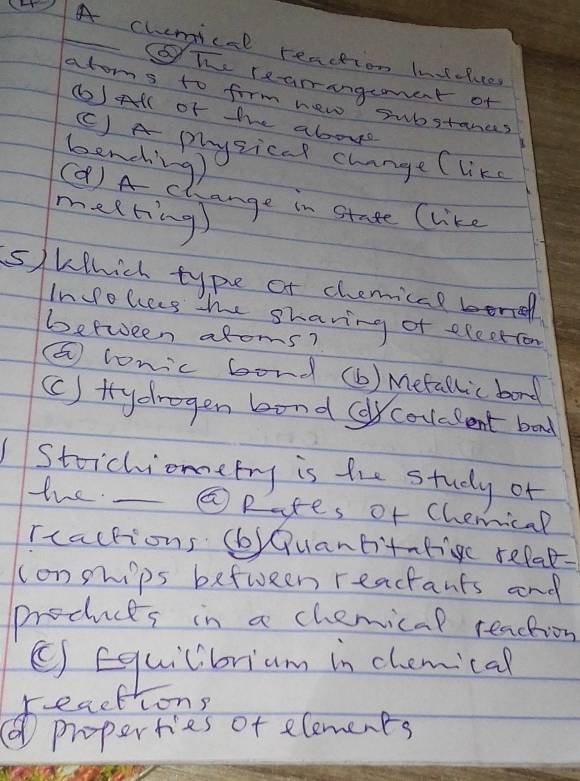 (4) A chemical reaction Involves
___ (a) The rearrangement of
atoms to form new substances
(b) All of the above
(c) A physical change (like
bending)
(d) A change in state (like
melting)
5) Which type of chemical bond
Involves the sharing of electron
between atoms?
(a) ionic bond (b) Metallic bond
(c) Hydrogen bond (d) Covalent bond
) Stoichiometry is the study of
the. — (a) Rates of Chemical
reactions. (b) Quantitative relat-
ionships between reactants and
products in a chemical reaction
(c) Equilibrium in chemical
reactions
(d) properties of elements